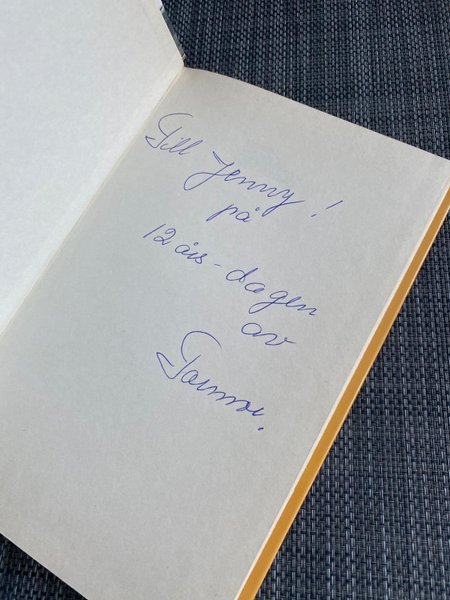 Till Jenny!
på
12 års-dagen
av
Farmor.